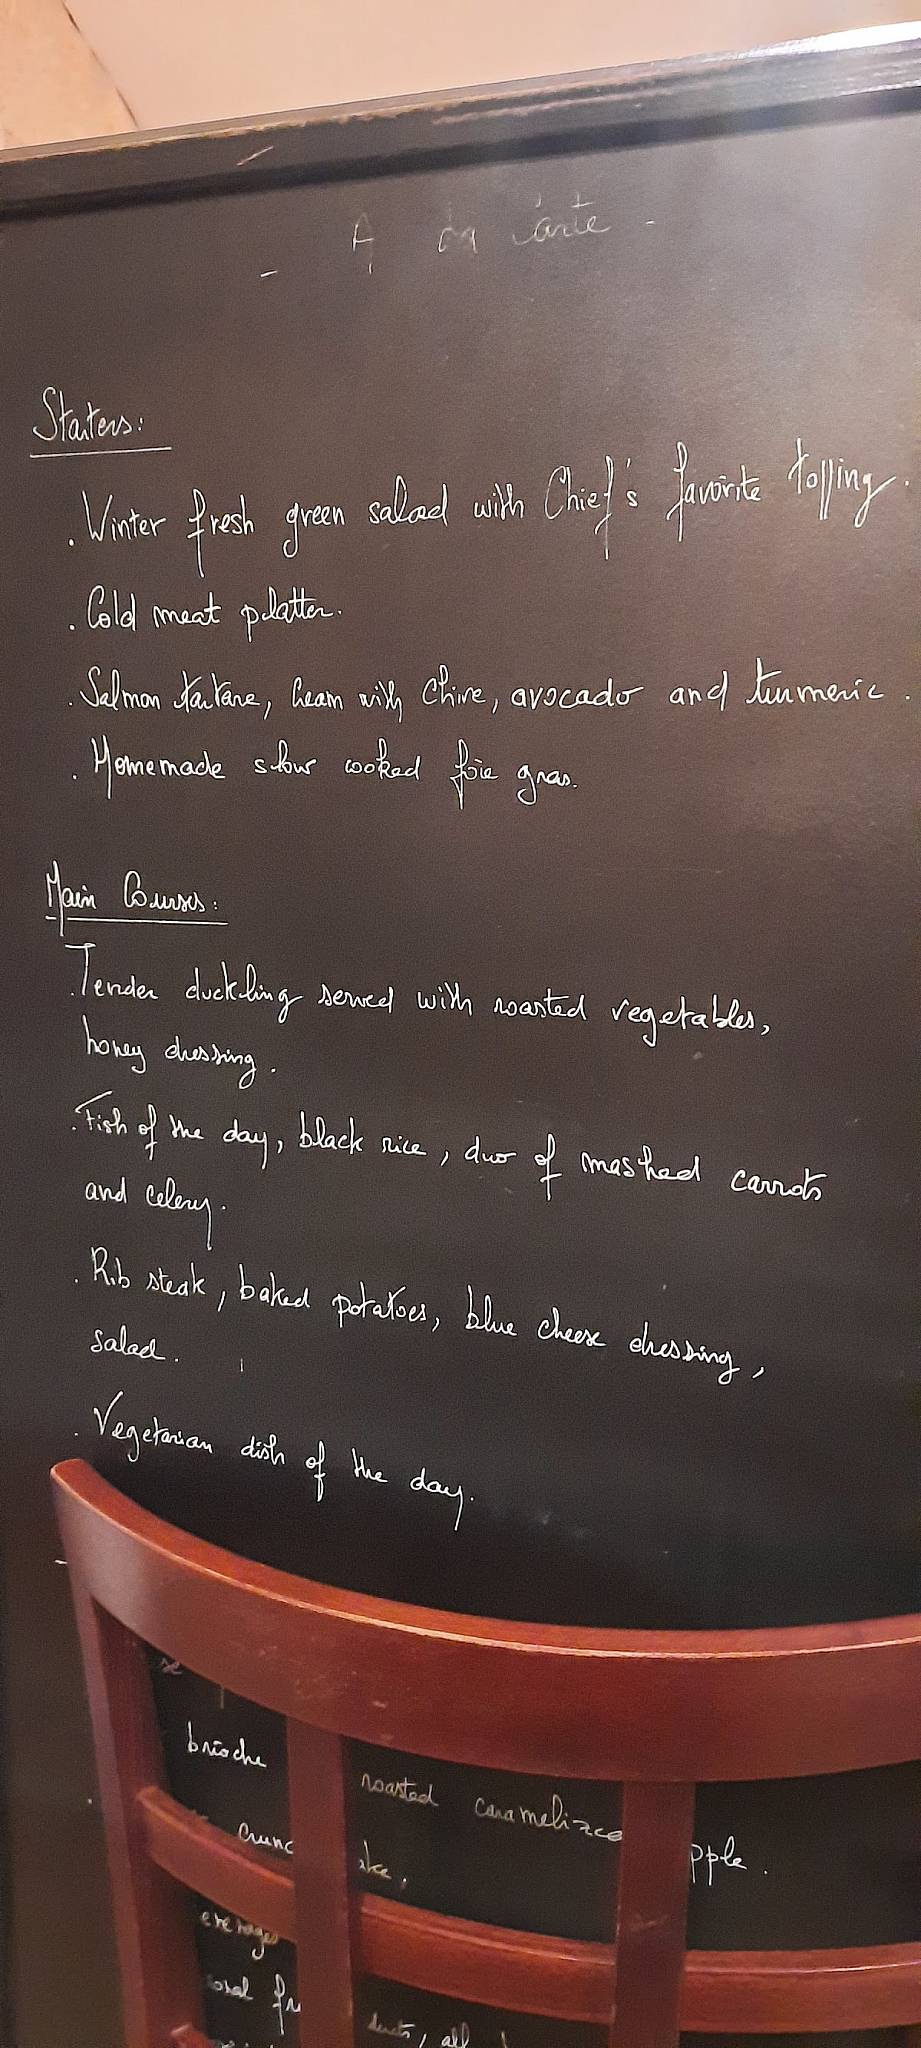 - A la carte -
Starters:
. Winter fresh green salad with Chief's favorite topping.
. Cold meat platter.
. Salmon tartare, cream with Chive, avocado and turmeric.
. Homemade slow cooked foie gras.
Main Courses:
. Tender duckling served with roasted vegetables,
honey dressing.
. Fish of the day, black rice, duo of mashed carrots
and celery.
. Rib steak, baked potatoes, blue cheese dressing,
salad.
. Vegetarian dish of the day.
brioche roasted
, all